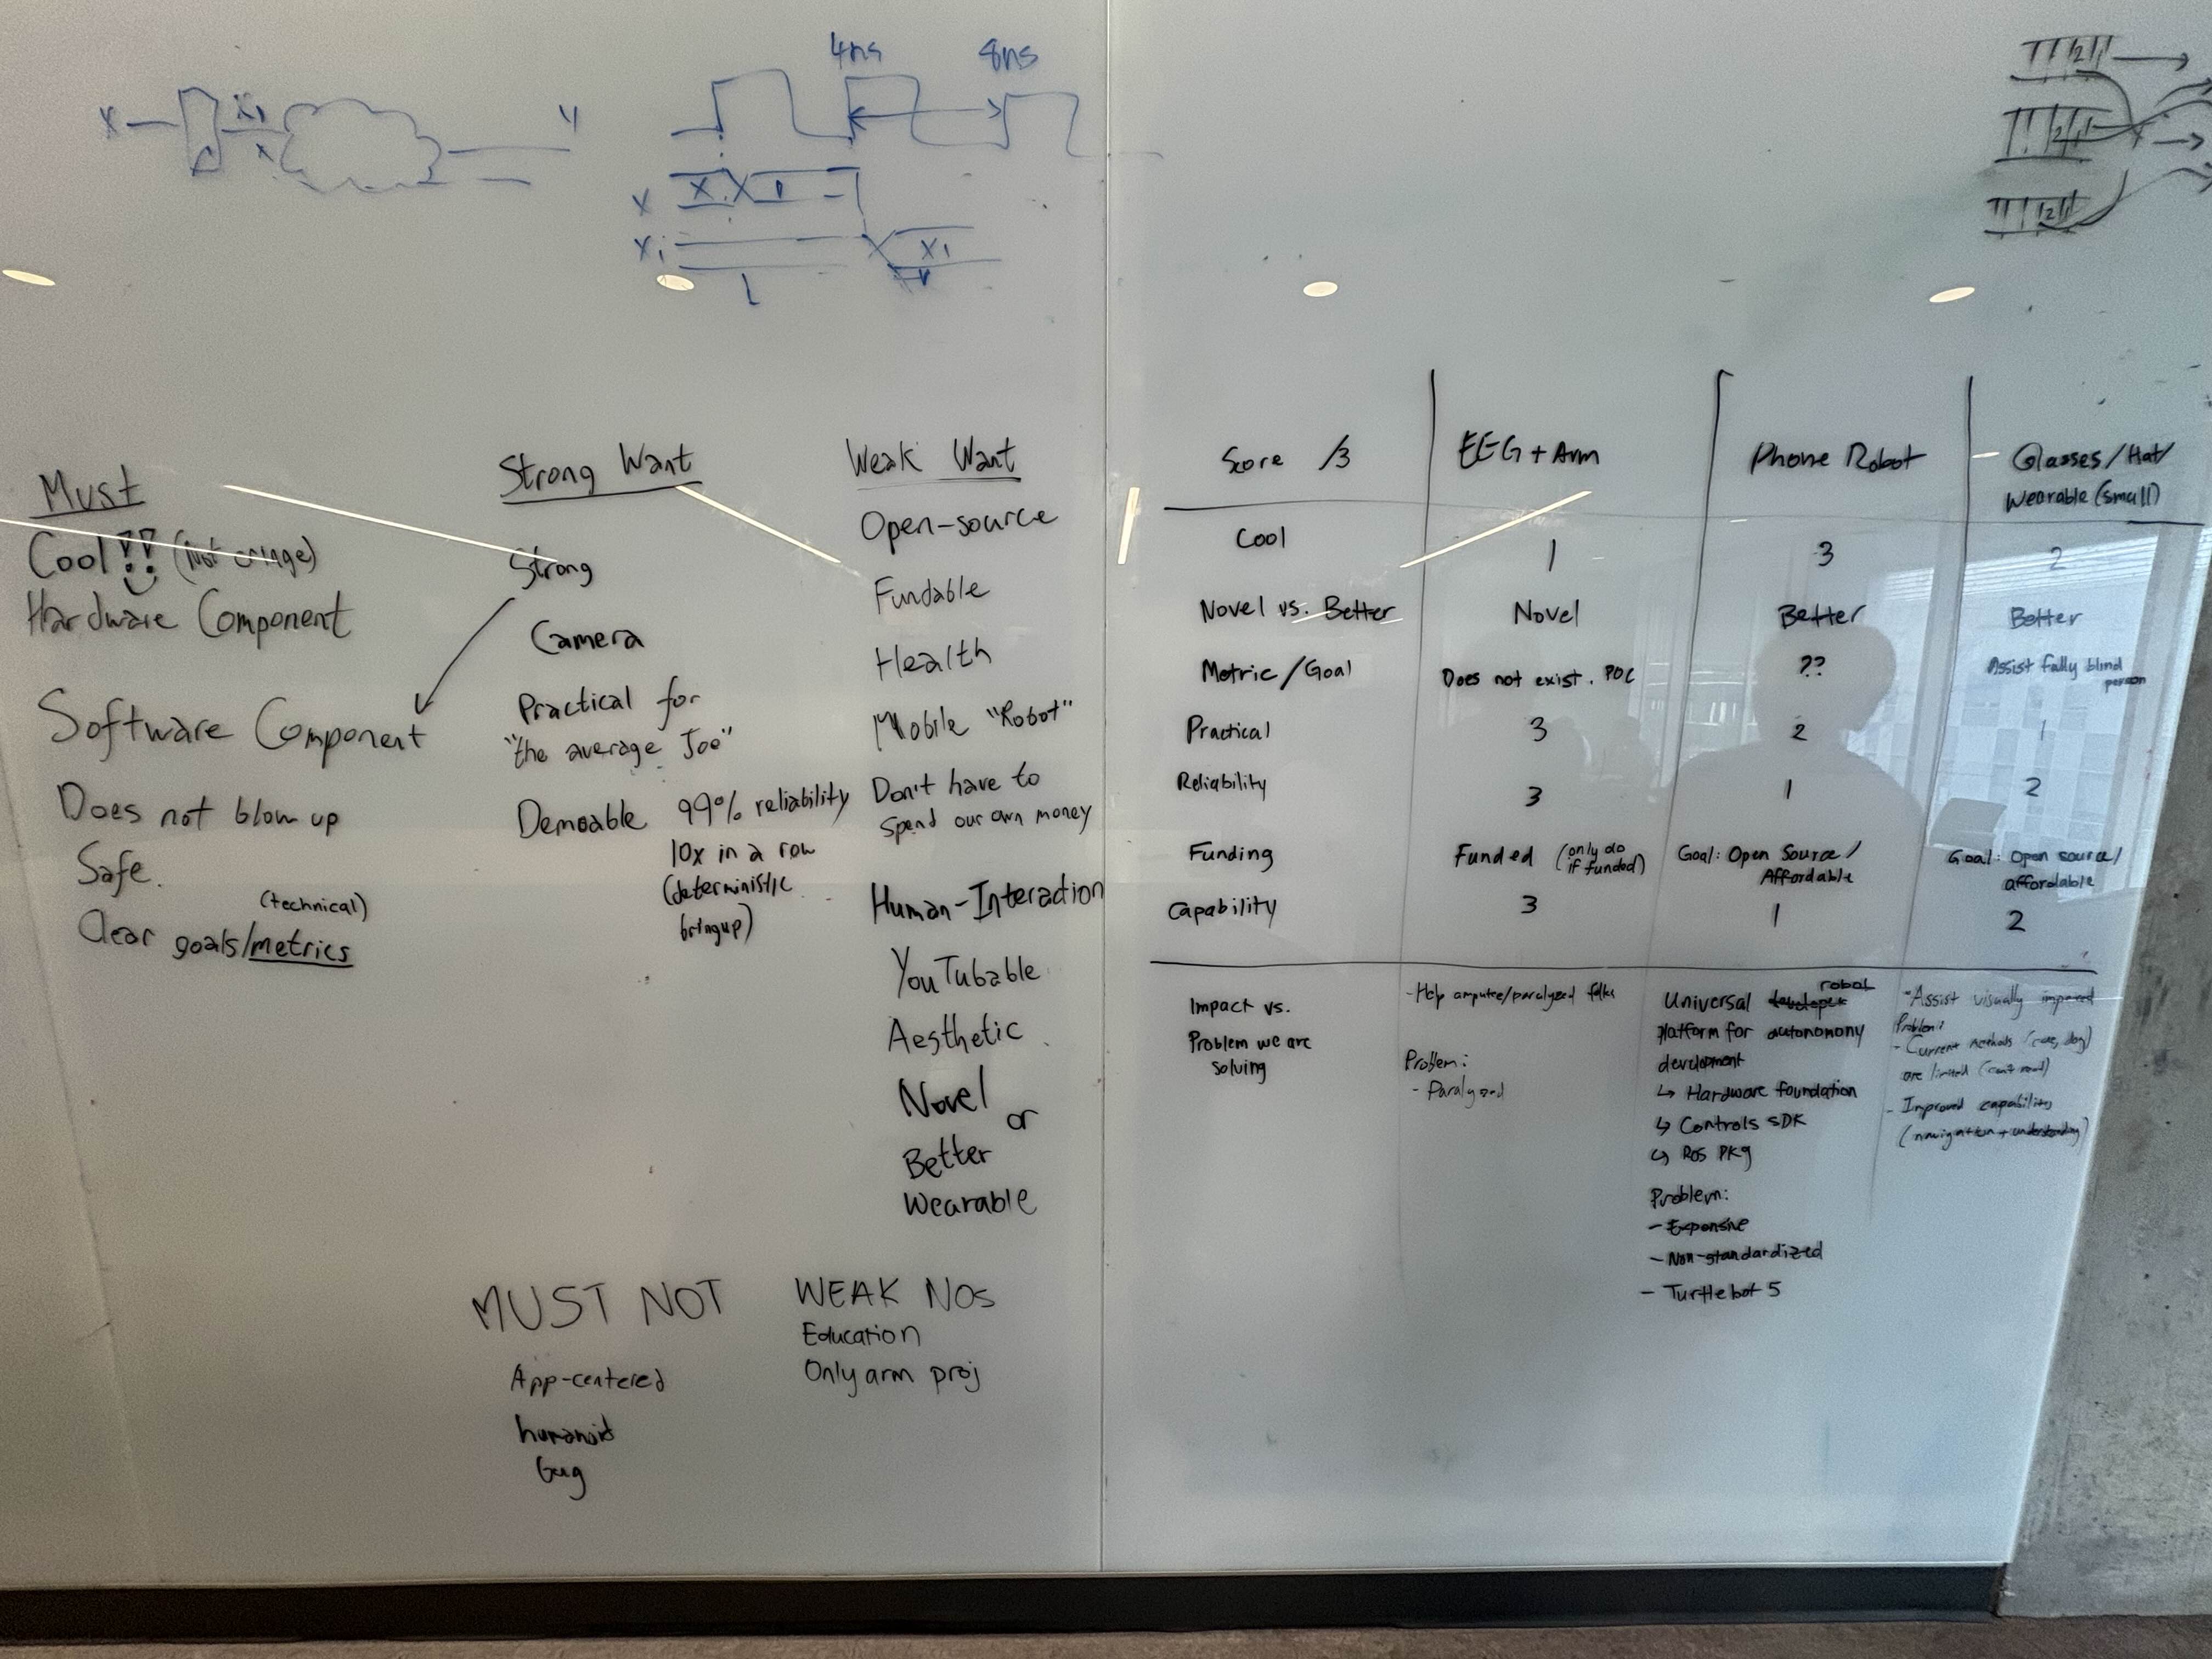 4ns 8ns
X X1 Y
X
X X
Xi X1
Must
Cool!! (Not cringe)
Hardware Component
Software Component
Does not blow up
Safe.
(technical)
Clear goals/metrics
Strong Want
Strong
Camera
Practical for
"the average Joe"
Demoable 99% reliability
10x in a row
(deterministic
bringup)
Weak Want
Open-source
Fundable
Health
Mobile "Robot"
Don't have to
spend our own money
Human-Interaction
YouTubable
Aesthetic
Novel
or
Better
Wearable
MUST NOT
App-centered
humanoid
WEAK NOs
Education
Only arm proj
Score /3 EEG + Arm Phone Robot Glasses/Hat/
Wearable (small)
Cool 1 3 2
Novel vs. Better Novel Better Better
Metric/Goal Does not exist. POC ?? Assist fully blind
person
Practical 3 2 1
Reliability 3 1 2
Funding Funded (only do
if funded) Goal: Open Source/
Affordable Goal: Open source/
affordable
Capability 3 1 2
Impact vs.
Problem we are
solving
- Help amputee/paralyzed folks
Problem:
- Paralyzed
Universal developer robot
platform for autonomy
development
↳ Hardware foundation
↳ Controls SDK
↳ ROS PKg
Problem:
- Expensive
- Non-standardized
- Turtlebot 5
- Assist visually impared
Problem:
- Current methods (cane, dog)
are limited (can't read)
- Improved capability
(navigation + understanding)